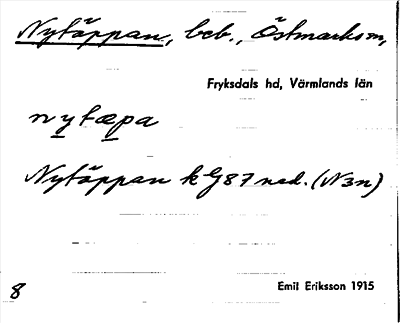 Nytäppan, beb., Östmarks sn,
Fryksdals hd, Värmlands län
nytæpa
Nytäppan k G87 ned. (N3n)
8
Emil Eriksson 1915